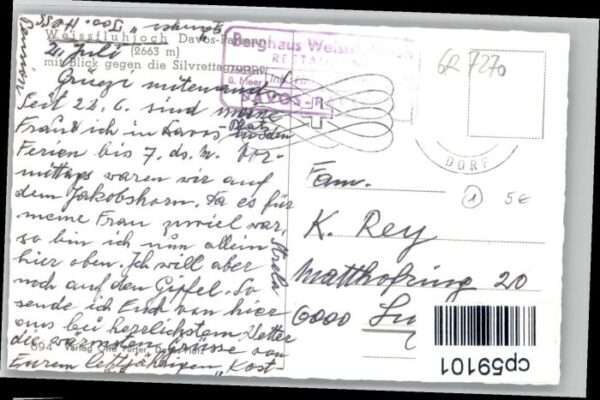 Pension "Soo. Hess"
Weissfluhjoch Davos-Parsenn
2. Juli (2663 m)
mit Blick gegen die Silvrettagruppe
Grüezi mitenand
Seit 22. 6. sind meine
Frau & ich in Davos-Platz
Ferien bis 7. ds. M. Vor-
mittags waren wir auf
dem Jakobshorn. Da es für
meine Frau zuviel war,
so bin ich nun allein
hier oben. Ich will aber
noch auf den Gipfel. So
sende ich Euch von hier
aus bei herrlichstem Wetter
die wärmsten Grüsse von
Eurem letztjährigen "Kost
Strela
894 Verlag
Berghaus Weissfluhjoch
RESTAURANT
ü. Meer
DAVOS
DORF
GR 7270
1 5€
Fam.
K. Rey
Matthofring 20
6000 Lu
cp59101